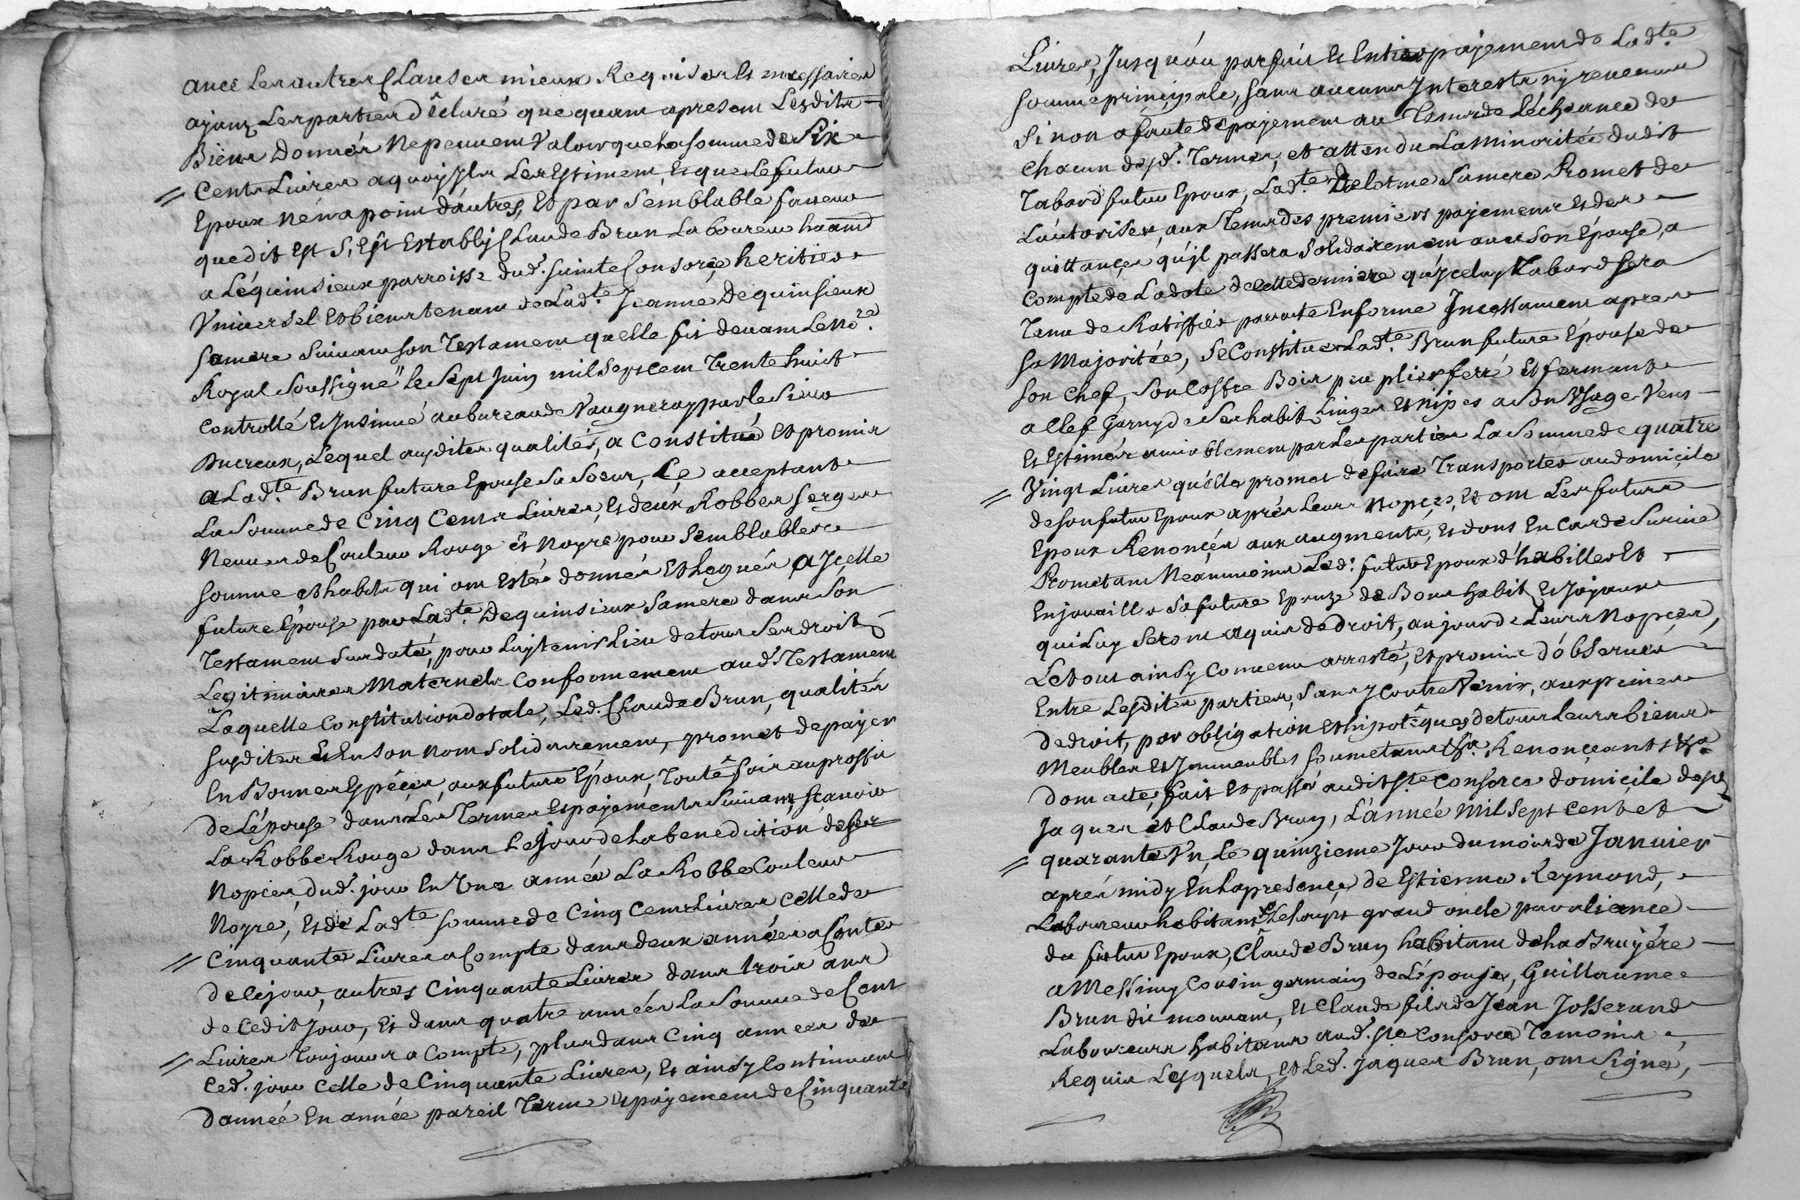 avec les autres Clauses mieux Requises et necessaires
ayanz les parties dêclaré que quam apresem lesdits
Biens donnés ne peuvem valoir que la somme de Six
Cents Livres a quoy Ils les Estimem, et que le futur
Epoux nén a poim d'autres, et par semblable faveur
que dit Est S'Est Establyj Claude Brun laboureur habitant
a Léquinsieux parroisse dud. sainte Consorce, heritier
Vniversel et bien tenam de lad.te Jeanne Dequinsieux
sa mere suivam son Testamem quelle fit devam le no.re
Royal soussigné le sept Juin mil sept cem trente huit
Controllé et Insinué au bureau de Vaugneray par le sieur
Ducreux, lequel ausdites qualités, a Constitué et promis
a Lad.te Brun future Epouse sa soeur, Ce acceptant
La Somme de Cinq Cents Livres, et deux Robbes serge
neuves de Couleur Rouge et Noyre pour semblable
somme et habits qui om Esté donnés et Legués a Jcelle
future Epouse par Lad.te Dequinsieux sa mere dans son
Testamem sus daté, pour luy tenir lieu de tous ses droits
Legitimaires Maternels conformemem aud. Testamem
Laquelle Constitution dotale, Led. Claude Brun, qualités
susdites et En son nom solidairemem, promet de payer
En Bonnes Espêces, aux futurs Epoux, toutêfois au proffit
de L'épouse dans les Termes et payements suivam, sçavoir
La Robbe Rouge dans le Jour de la benediction de ses
Nopces, dud. jour En une année La Robbe Couleur
Noyre, et de Lad.te somme de Cinq Cems Livres Celle de
Cinquante Livres a Compte dans deux années a Conter
de Cejour, autres Cinquante Livres dans trois ans
de Cedit Jour, et dans quatre années La Somme de Cent
Livres toujours a Compte, plus dans Cinq années de
Ced. jour Celle de Cinquante Livres, et ainsy Continuam
d'année En année pareil Terme et payemem de Cinquante
Livres, Jusqu'au parfait et Entier payemem de Lad.te
somme principale, sans aucuns Interests ny revenus
Sinon a faute de payemem au Tems de L'écheance de
chacun desd. Termes, et attendu La minorité dudit
Tabard futur Epoux, Lad.te Delorme sa mere Promet de
L'autoriser, aux Tems des premiers payemens et des
quittances qu'il passera solidairemem avec son Epouse, a
Compte de La dote de cette derniere qu'Jceluy Tabard sera
Tenu de Ratiffier par acte En forme Incessamem apres
sa Majoritée, se Constitue Lad.te Brun future Epouse de
son Chef, son Coffre Bois peuplier ferré et fermant
a Clef Garny de ses habits Linges et nipes a son Usage Venu
et Estimés amiablemem par les parties La Somme de quatre
Vingt Livres qu'elle promet de faire Transporter au domicile
de son futur Epoux aprés leurs Nopces, Et om Les futurs
Epoux Renoncés aux augments, et dons En Cas de Survie
Prometam Neanmoins Led. futur Epoux d'habiller Et
Enjouailler sa future Epouze de Bons habits Et Joyaux
qui luy serom aquis de Droit, au jour de Leurs Nopces,
Le tout ainsy Convenu arresté, et promis d'observer
Entre Lesdites parties, sans y Contrevenir, aux peines
de droit, par obligation et hipotêques de tous leurs biens
Meubles et Immeubles soumetans &a. Renonçants &a
dom acte, fait et passé audit S.te Consorce domicile desd.
Jaques et Claude Brun, L'année mil sept cent et
quarante Un, Le quinzieme Jour du mois de Janvier
aprés midy En la presence de Estienne Reymond,
Laboureur habitant grand oncle par aliance
du futur Epoux, Claude Brun habitam de la Bruyére
a Messimy Cousin germain de L'épouse, Guillaume
Brun du mouram, et Claude fils de Jean Josserand
Laboureurs habitans aud. S.te Consorce Temoins
Requis Lesquels, et Led. Jaques Brun, om signé,